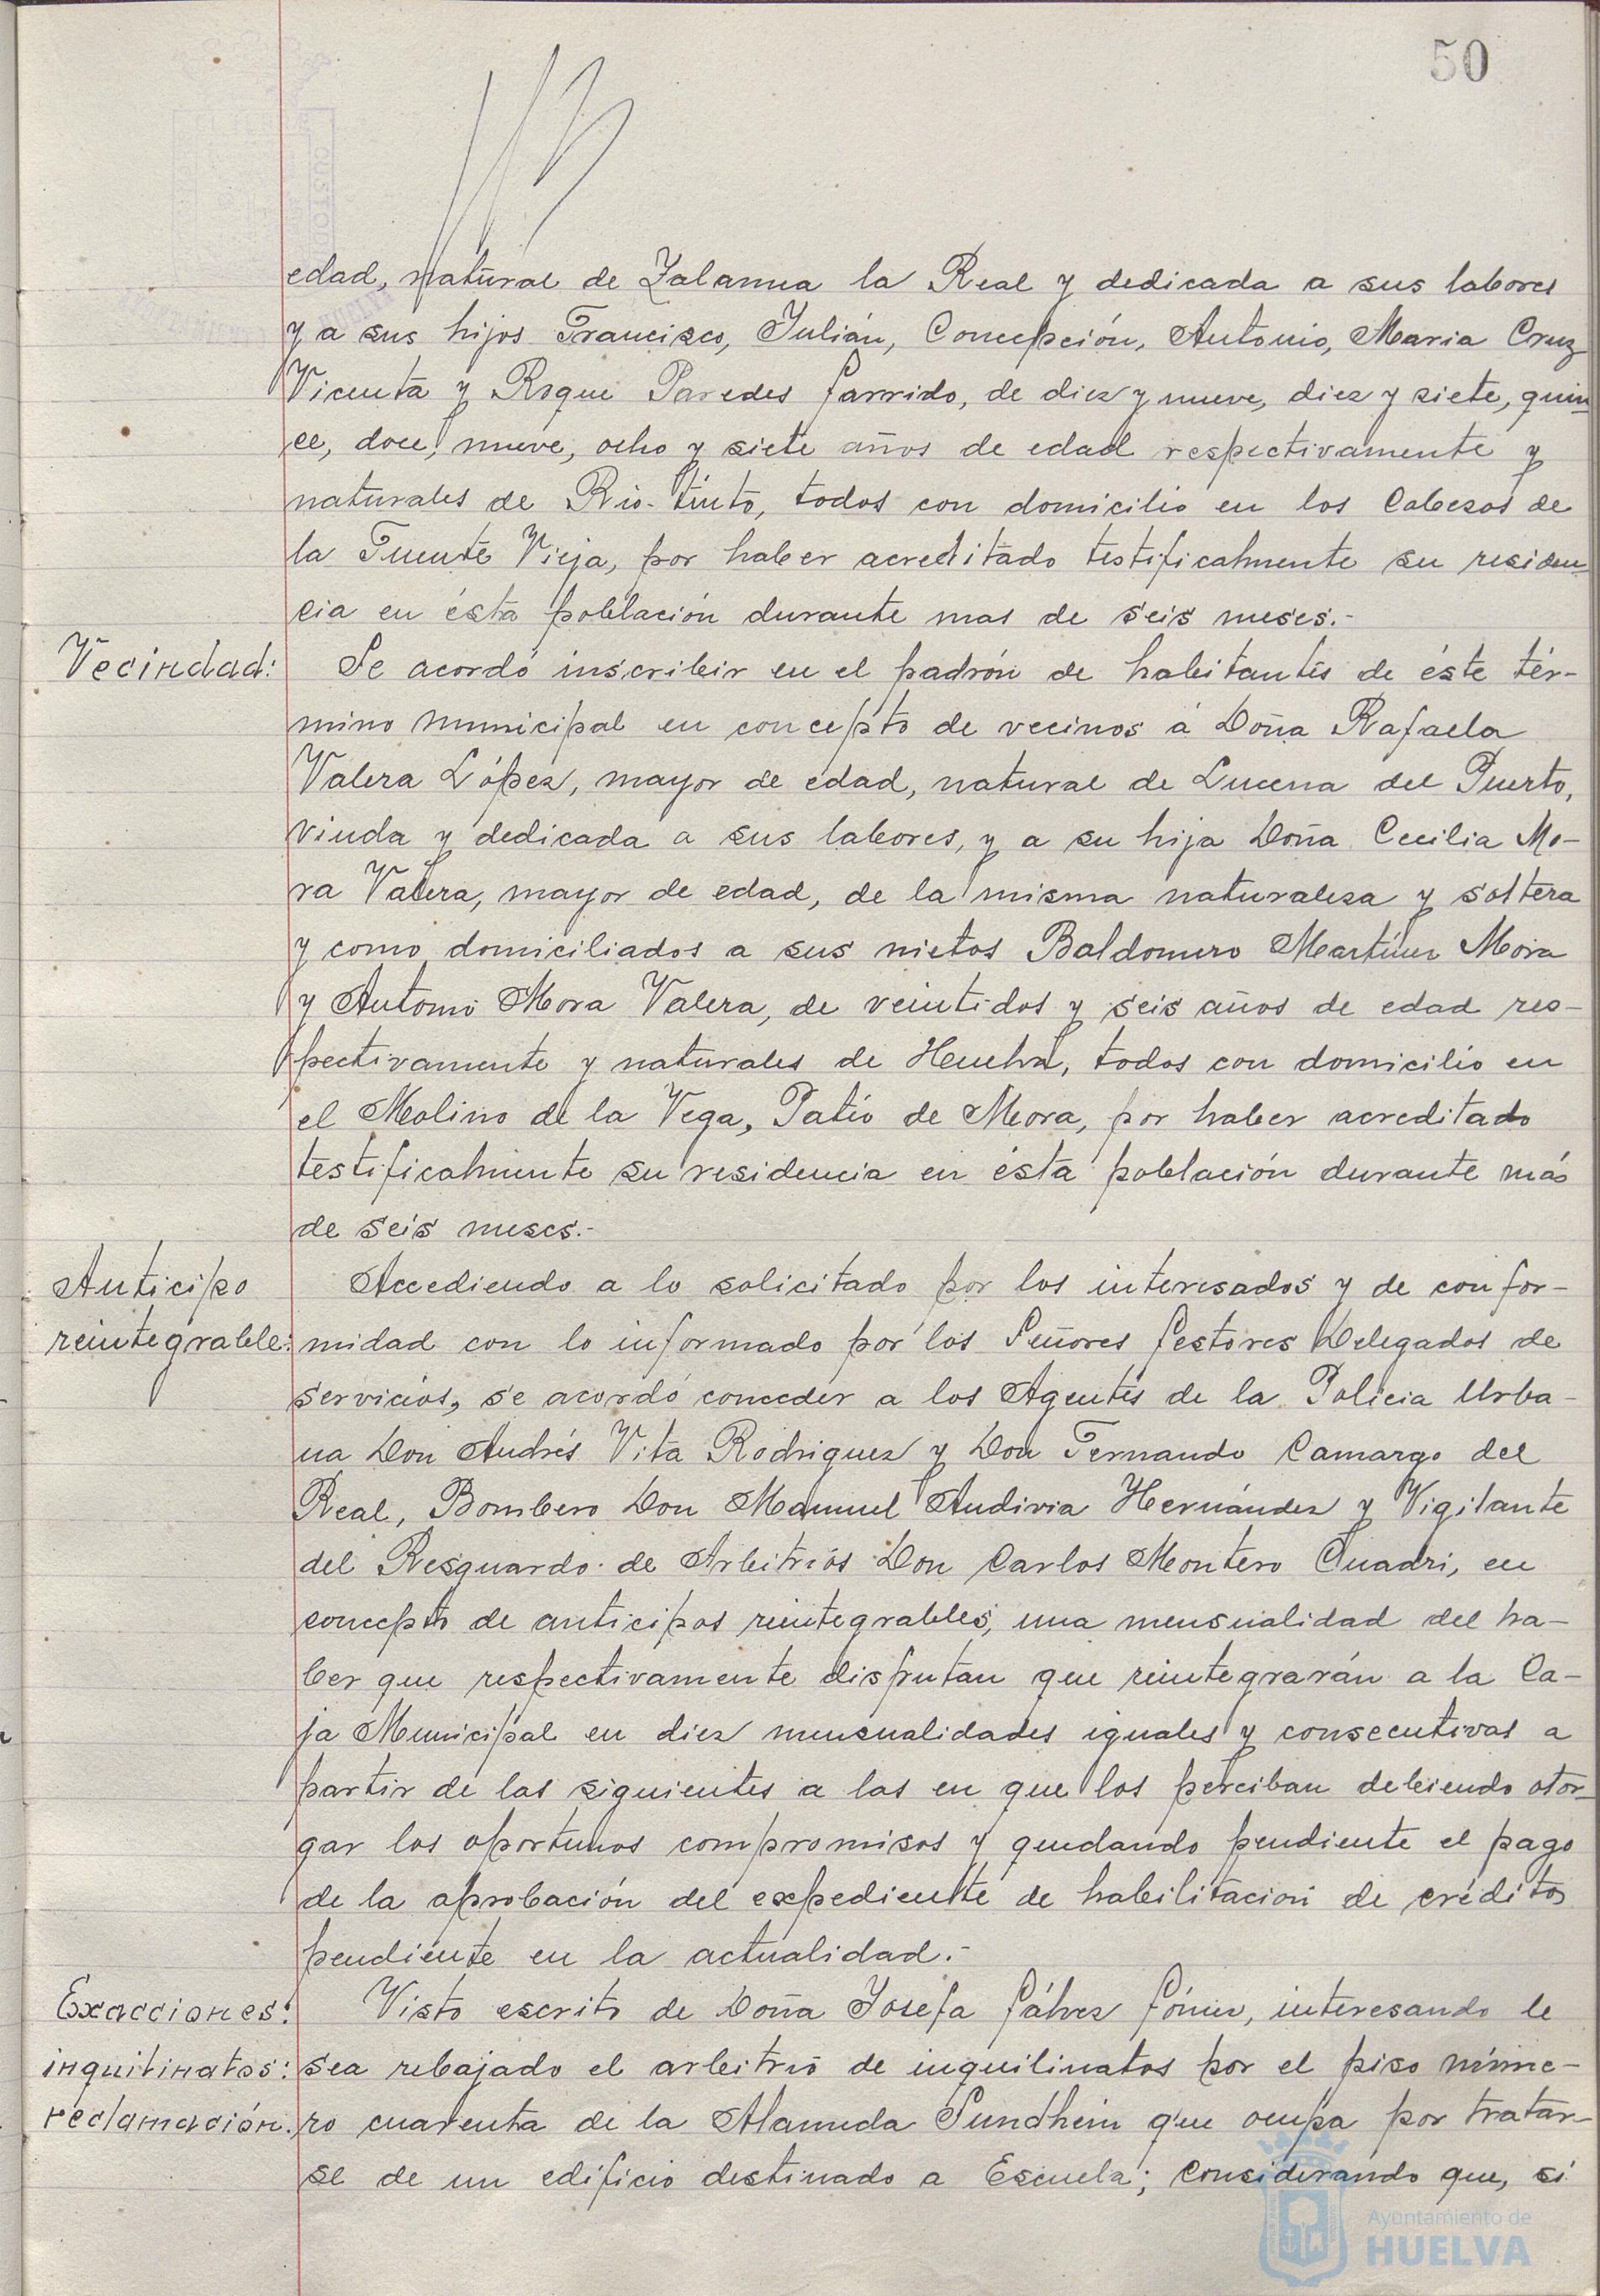 50
edad, natural de Zalamea la Real y dedicada a sus labores
y a sus hijos Francisco, Julián, Concepción, Antonio, Maria Cruz
Vicenta y Roque Paredes Garrido, de diez y nueve, diez y siete, quin
ce, doce, nueve, ocho y siete años de edad respectivamente y
naturales de Rio-tinto, todos con domicilio en los Cabezos de
la Fuente Vieja, por haber acreditado testificalmente su residen
cia en ésta población durante mas de seis meses.-
Vecindad: Se acordó inscribir en el padrón de habitantes de éste tér-
mino municipal en concepto de vecinos á Doña Rafaela
Valera López, mayor de edad, natural de Lucena del Puerto,
viuda y dedicada a sus labores, y a su hija Doña Cecilia Mo-
ra Valera, mayor de edad, de la misma naturaleza y soltera
y como domiciliados a sus nietos Baldomero Martínez Mora
y Antonio Mora Valera, de veintidos y seis años de edad res-
pectivamente y naturales de Huelva, todos con domicilio en
el Molino de la Vega, Patio de Mora, por haber acreditado
testificalmente su residencia en ésta población durante más
de seis meses.-
Anticipo Accediendo a lo solicitado por los interesados y de confor-
reintegrable: midad con lo informado por los Señores Gestores Delegados de
servicios, se acordó conceder a los Agentes de la Policia Urba-
na Don Andrés Vita Rodriguez y Don Fernando Camargo del
Real, Bombero Don Manuel Andivia Hernández y Vigilante
del Resguardo de Arbitrios Don Carlos Montero Cuadri, en
concepto de anticipos reintegrables, una mensualidad del ha-
ber que respectivamente disfrutan que reintegrarán a la Ca-
ja Municipal en diez mensualidades iguales y consecutivas a
partir de las siguientes a las en que los perciban debiendo otor-
gar los oportunos compromisos y quedando pendiente el pago
de la aprobación del expediente de habilitación de créditos
pendiente en la actualidad.-
Exacciones: Visto escrito de Doña Josefa Gálvez Gómez, interesando le
inquilinatos: sea rebajado el arbitrio de inquilinatos por el piso núme-
reclamación. ro cuarenta de la Alameda Sundhein que ocupa por tratar-
se de un edificio destinado a Escuela; considerando que, si
Ayuntamiento de
HUELVA